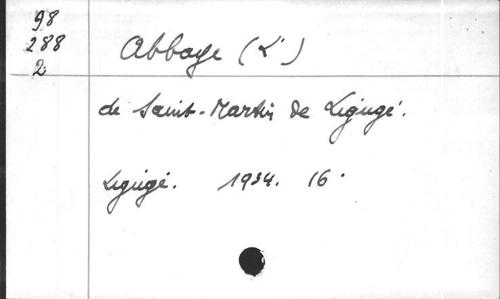 98
288
2
Abbaye (L')
de Saint-Martin de Ligugé.
Ligugé. 1934. 16°